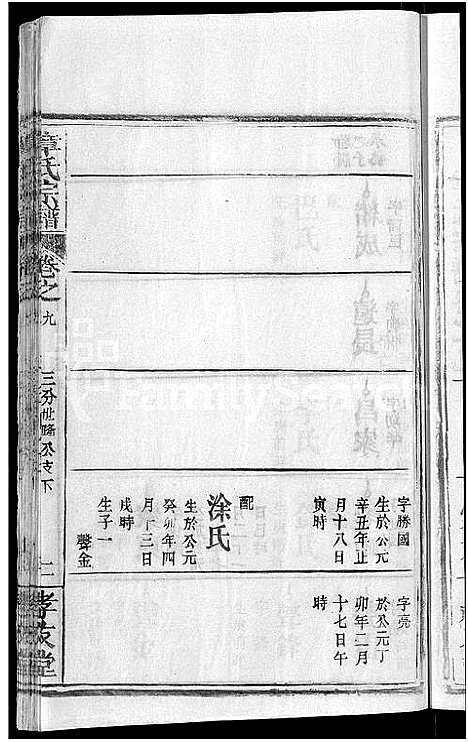 章氏宗譜
卷之九
三分世
公支下
二
孝友堂
字勝國
生於公元
辛丑年正
月十八日
寅時
配
涂氏
生於公元
癸卯年四
月十三日
戌時
生子一
聲金
字亮
生於公元丁
卯年二月
十七日午
時
FamilySearch